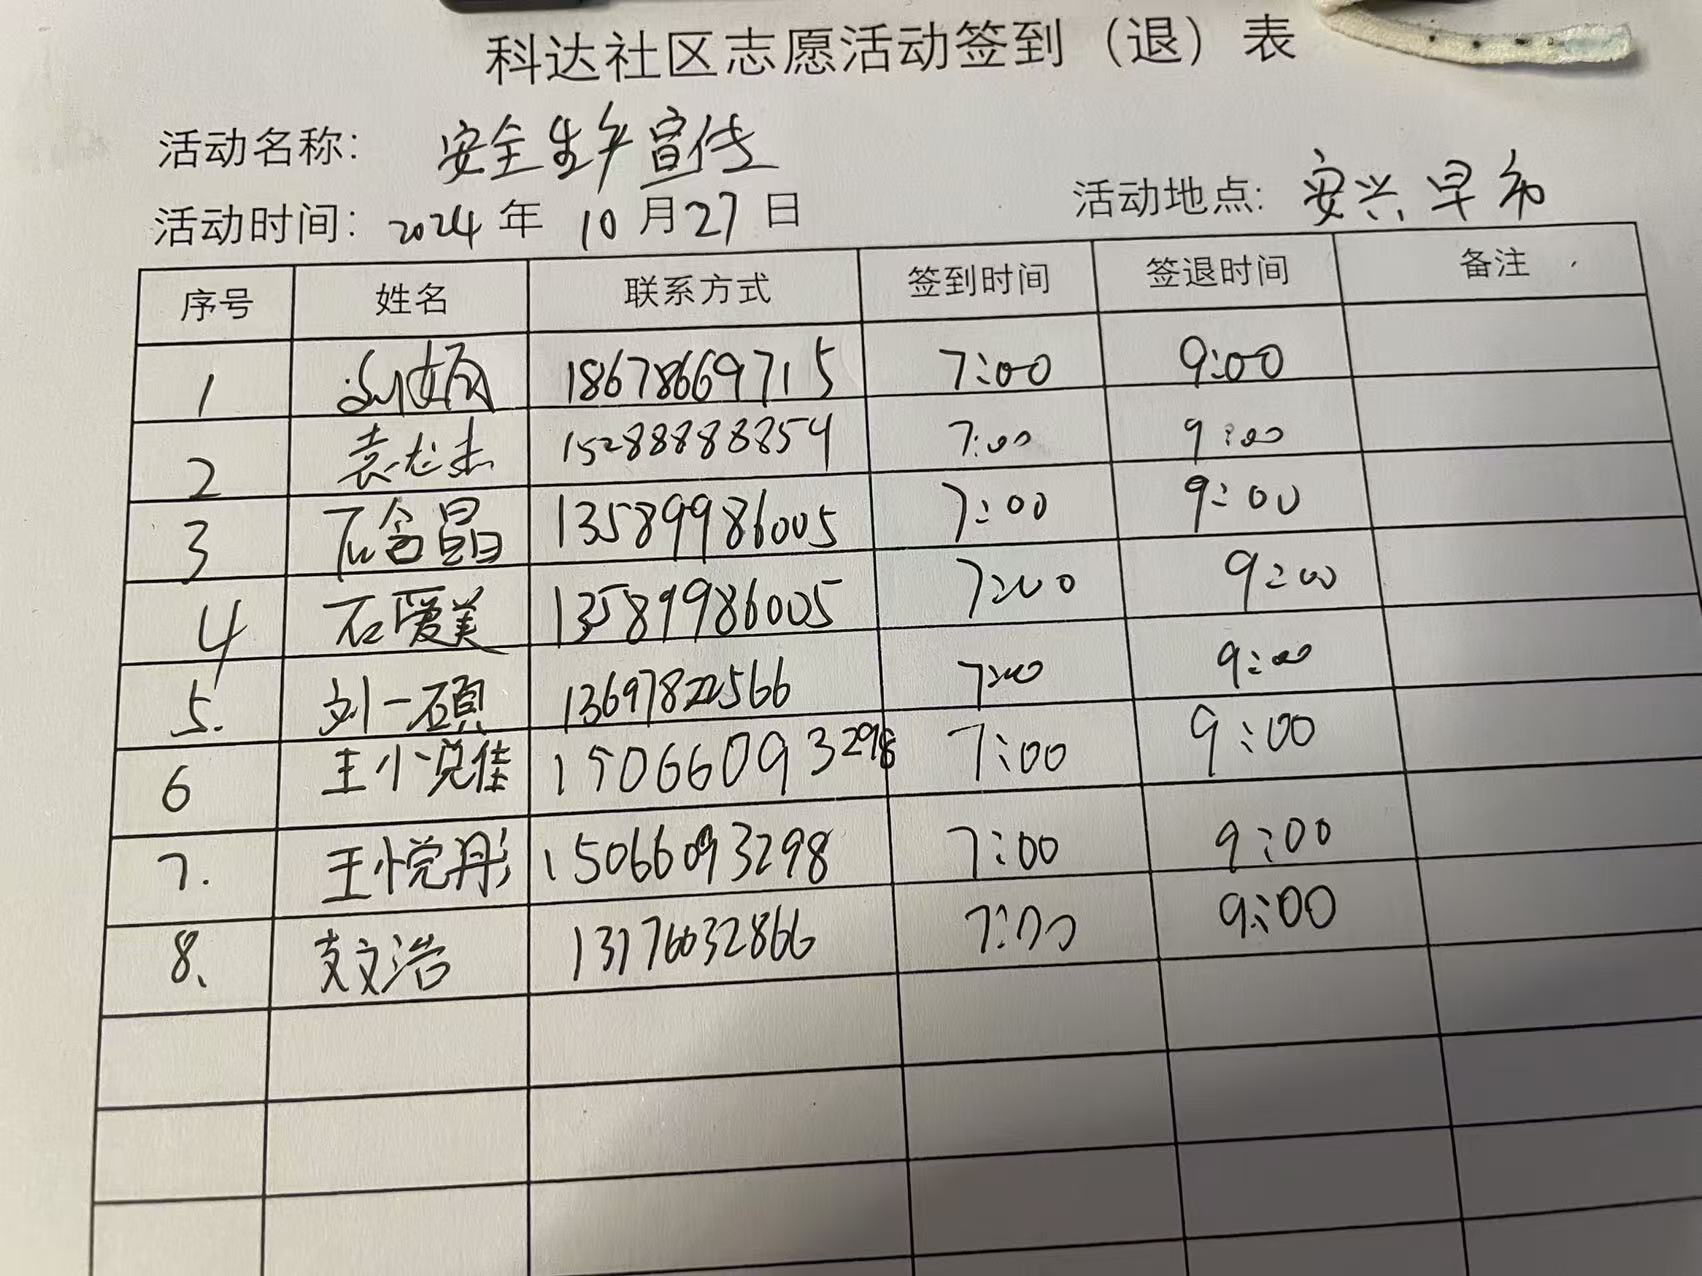 科达社区志愿活动签到（退）表
活动名称： 安全生产宣传
活动时间：2024年10月27日 活动地点：安兴早市
序号 姓名 联系方式 签到时间 签退时间 备注
1 刘 18678669715 7:00 9:00
2 袁志杰 15288888854 7:00 9:00
3 石含晶 13589986005 7:00 9:00
4 石爱美 13589986005 7:00 9:00
5. 刘一硕 13697822566 7:00 9:00
6 王小悦佳 15066093298 7:00 9:00
7. 王悦彤 15066093298 7:00 9:00
8、 支文浩 13176032866 7:00 9:00